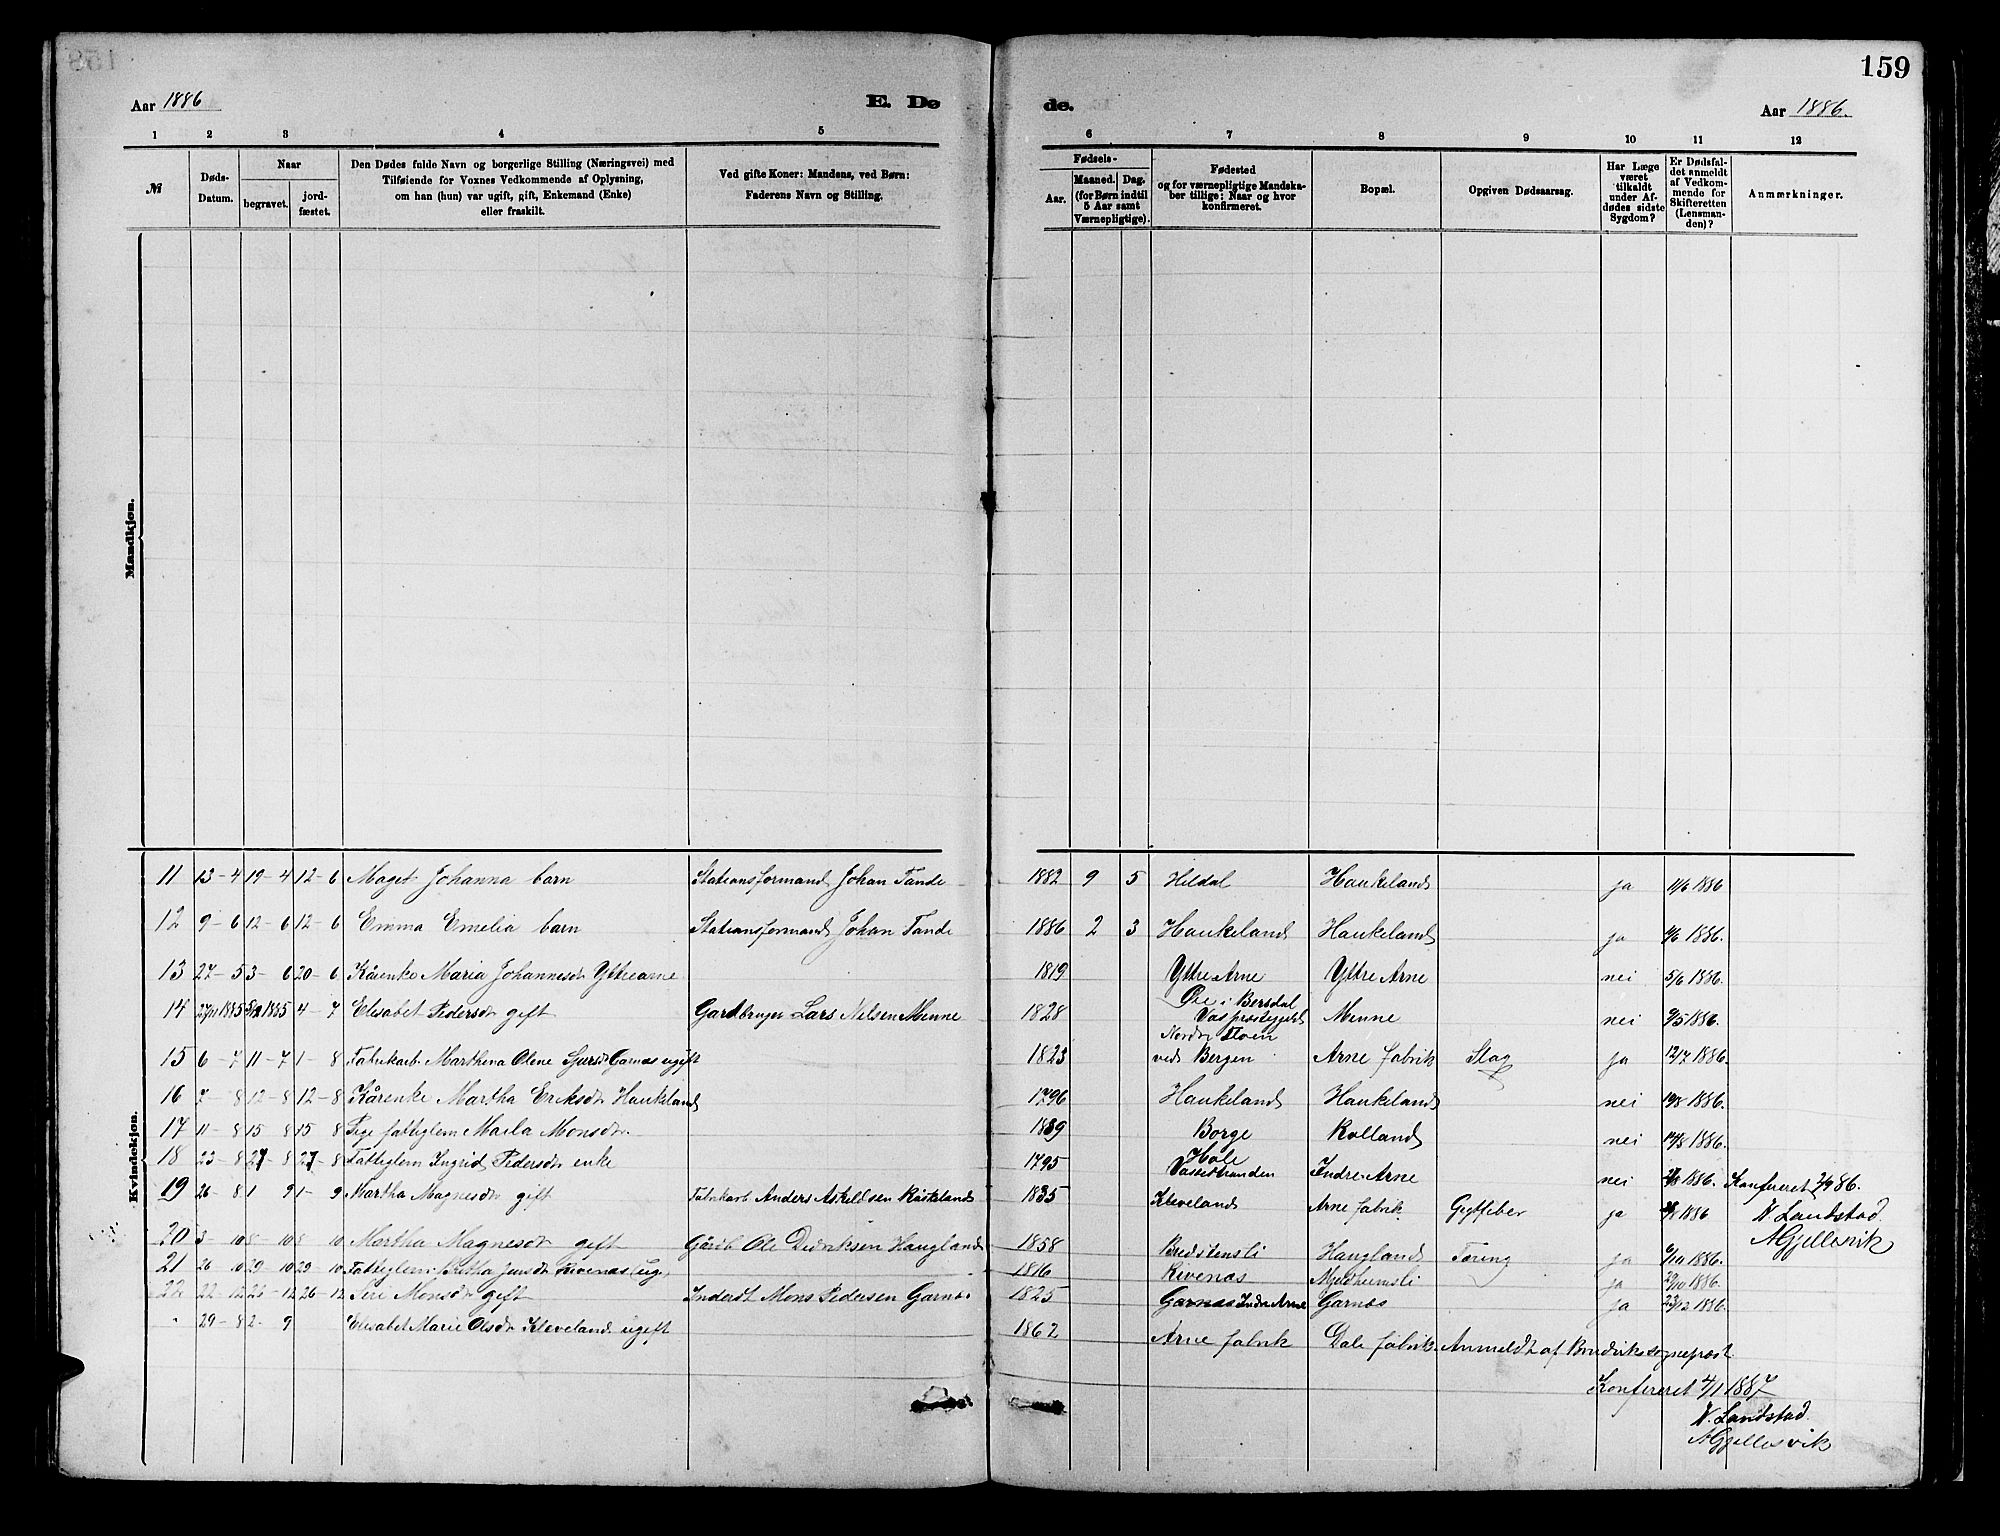 159
Aar 1886
E. Døde.
Aar 1886.
1 2 3 4 5 6 7 8 9 10 11 12
№
Døds-Datum.
Naar
begravet.
jord-fæstet.
Den Dødes fulde Navn og borgerlige Stilling (Næringsvei) med
Tilføiende for Voxnes Vedkommende af Oplysning,
om han (hun) var ugift, gift, Enkemand (Enke)
eller fraskilt.
Ved gifte Koner: Mandens, ved Børn:
Faderens Navn og Stilling.
Fødsels-
Aar.
Maaned. Dag.
(for Børn indtil
5 Aar samt
Værnepligtige).
Fødested
og for værnepligtige Mandska-
ber tillige: Naar og hvor
konfirmeret.
Bopæl.
Opgiven Dødsaarsag.
Har Læge
været
tilkaldt
under Af-
dødes sidste
Sygdom?
Er Dødsfal-
det anmeldt
af Vedkom-
mende for
Skifteretten
(Lensman-
den)?
Anmærkninger.
Mandkjøn.
Kvindekjøn.
11 13-4 19-4 12-6 Maget Johanna barn Stationsformand Johan Tande 1882 9 5 Hildal Haukeland ja 11/6 1886
12 9-6 12-6 12-6 Emma Emelia barn Stationsformand Johan Tande 1886 2 3 Haukeland Haukeland ja 11/6 1886.
13 27-5 3-6 20-6 Kårenke Maria Johannesdr Yttrearne 1819 Yttre Arne Yttre Arne nei 5/6 1886.
14 27/11 1885 5/12 1885 4-7 Elisabet Pedersdr gift Gardbruger Lars Nilsen Menne 1828 i Bersdal Menne nei 9/5 1886.
15 6-7 11-7 1-8 Fabrikarb. Marthina Olene Garnæs ugift 1823 Nordre Floen ved Bergen Arne fabrik Slag ja 12/7 1886.
16 7-8 12-8 12-8 Kårenke Martha Eriksdr Haukeland 1796 Haukeland Haukeland nei 10/8 1886.
17 11-8 15-8 15-8 Pige fattiglem Marla Monsdr 1839 Borge Kolland nei 14/8 1886.
18 23-8 27-8 27-8 Fattiglem Ingrid Pedersdr enke 1795 Hole Vassstranden Indre Arne nei 1886. Konfereret 2/9 86.
19 26-8 1-9 1-9 Martha Magnesdr gift Fabrikarb Anders Askildsen Risteland 1835 Kleveland Arne fabrik Gigtfeber ja 1886 N Landstad
A Gjellesvik
20 3-10 8-10 8-10 Martha Magnesdr gift Gårdb Ole Didriksen Haugland 1858 Bredstensli Haugland Tæring ja 6/10 1886.
21 26-10 29-10 29-10 Fattiglem Britha Jensdr Rivenæs ug. 1816 Rivenæs Mjeldheimsli ja 29/10 1886.
22 22-12 26-12 26-12 Siri Monsdr gift Inderst Mons Pedersen Garnæs 1825 Garnæs Indre Arne Garnæs ja 23/12 1886.
29-8 2-9 Elisabet Marie Olsdr Kleveland ugift 1862 Arne fabrik Dale fabrik. Anmeldt af Bruvik sognepræst
Konfereret 4/1 1887
N. Landstad.
A Gjellesvik